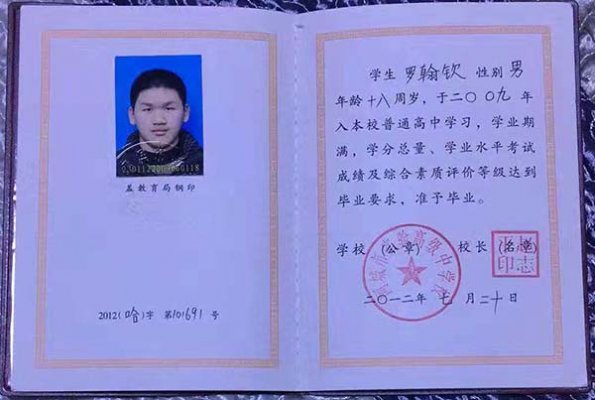 盖教育局钢印
2012(哈)字 第101691 号
学生 罗翰钦 性别 男
年龄 十八 周岁, 于二〇〇九 年
入本校普通高中学习, 学业期
满, 学分总量、学业水平考试
成绩及综合素质评价等级达到
毕业要求, 准予毕业。
学校 (公章) 校长 (名章)
二〇一二年 七 月 二十 日